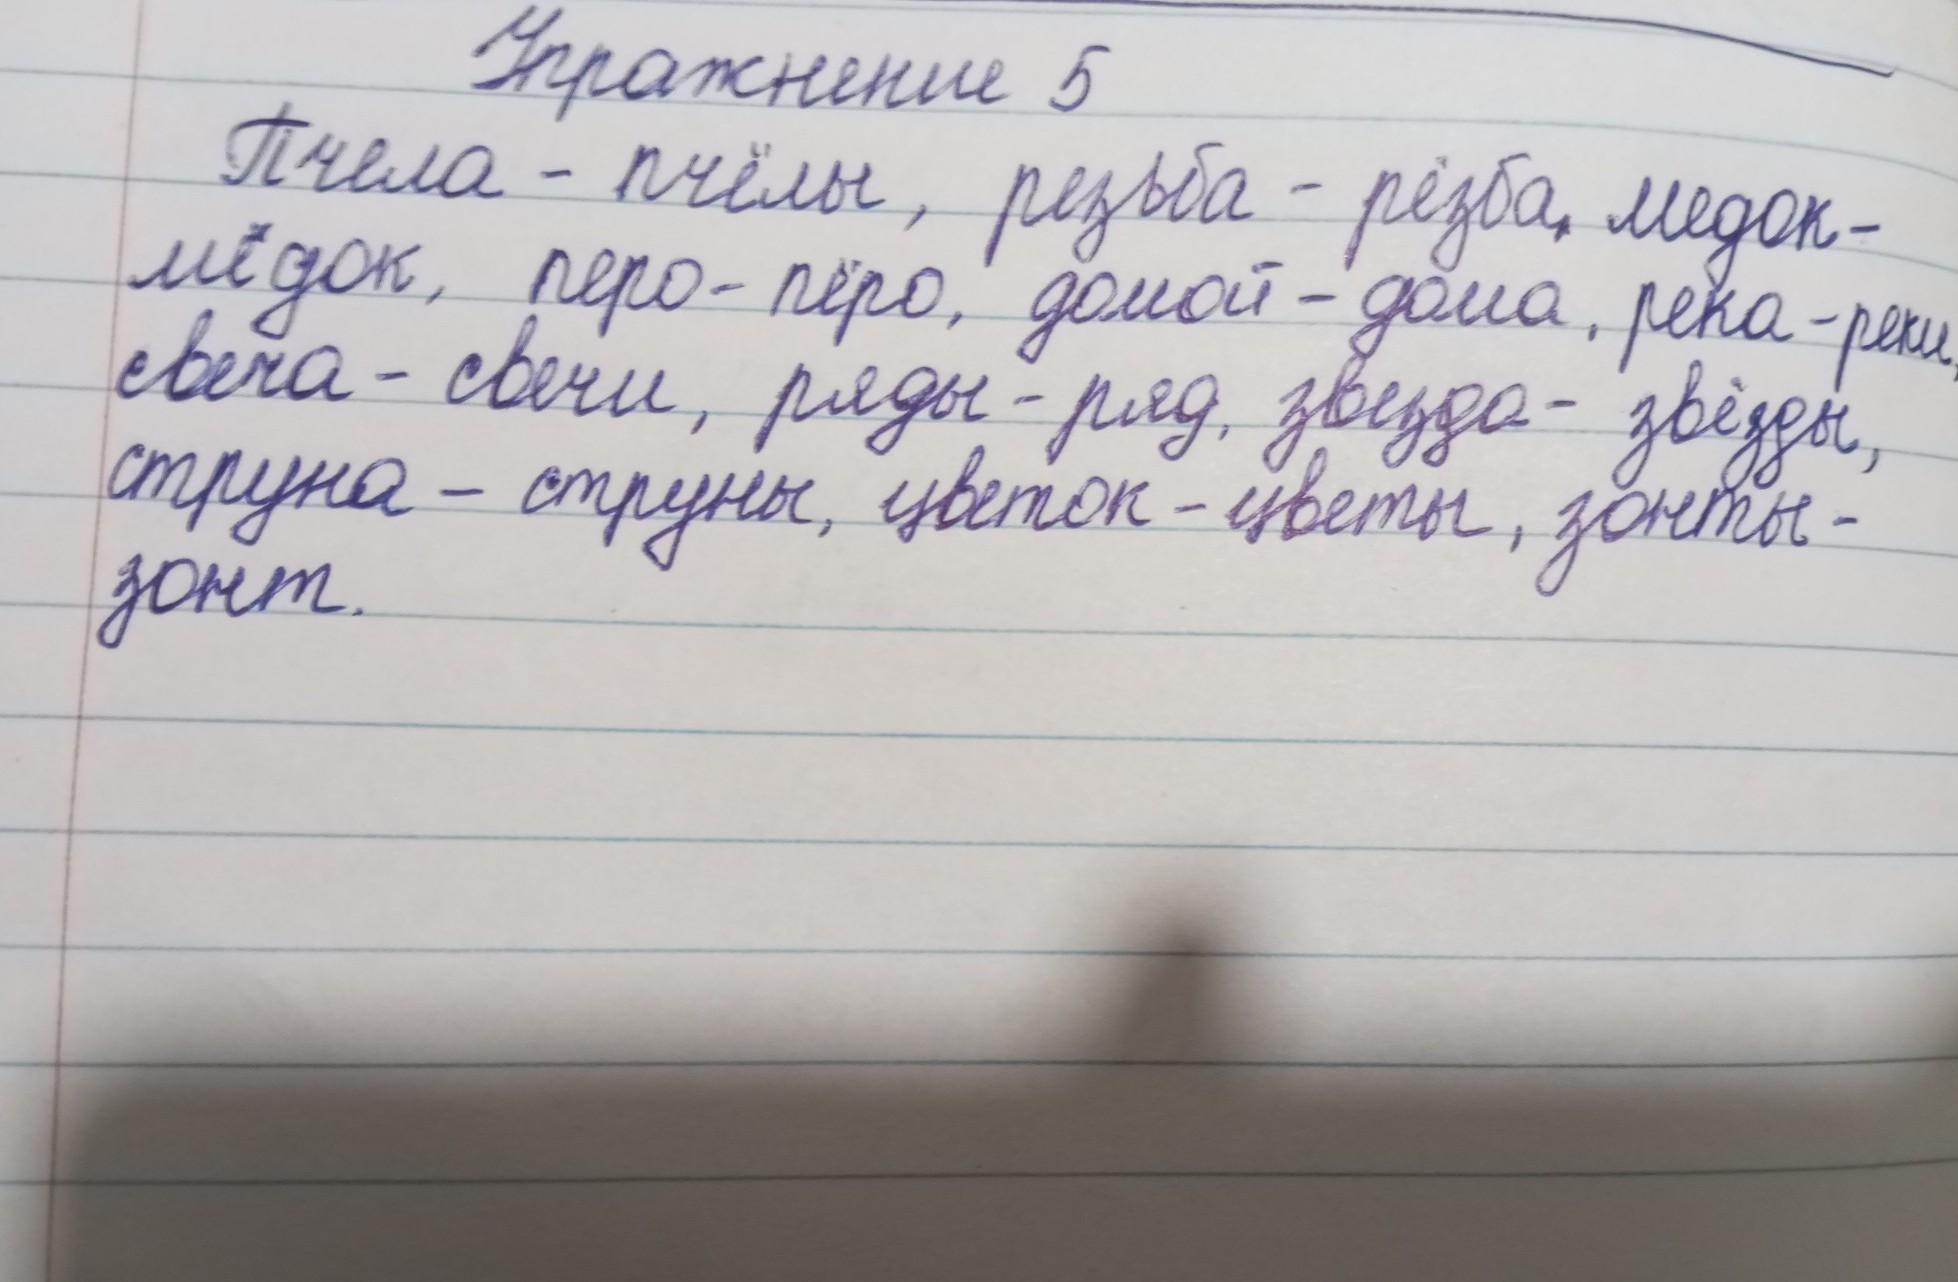 Упражнение 5
Пчела - пчёлы, резьба - рёзба, медок-
мёдок, перо - пёро, домой - дома, река - реки,
свеча - свечи, ряды - ряд, звезда - звёзды,
струна - струны, цветок - цветы, зонты -
зонт.